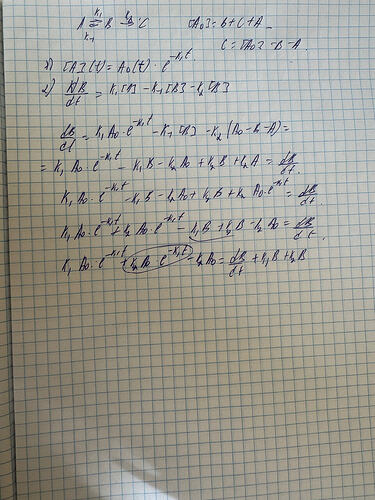 A ⇌ B → C   [A₀] = B + C + A
k₁ k₋₁ k₂   C = [A₀] - B - A
1) [A](t) = A₀(t) · e^(-k₁t)
2) d[B]/dt = k₁[A] - k₋₁[B] - k₂[B]
dB/dt = k₁A₀·e^(-k₁t) - k₋₁[B] - k₂(A₀-B-A) =
= k₁A₀·e^(-k₁t) - k₁B - k₂A₀ + k₂B + k₂A = dB/dt.
k₁A₀·e^(-k₁t) - k₁B - k₂A₀ + k₂B + k₂A₀e^(-k₁t) = dB/dt.
k₁A₀·e^(-k₁t) + k₂A₀·e^(-k₁t) - k₁B + k₂B - k₂A₀ = dB/dt.
k₁A₀·e^(-k₁t) + k₂A₀·e^(-k₁t) - k₂A₀ = dB/dt + k₁B + k₂B